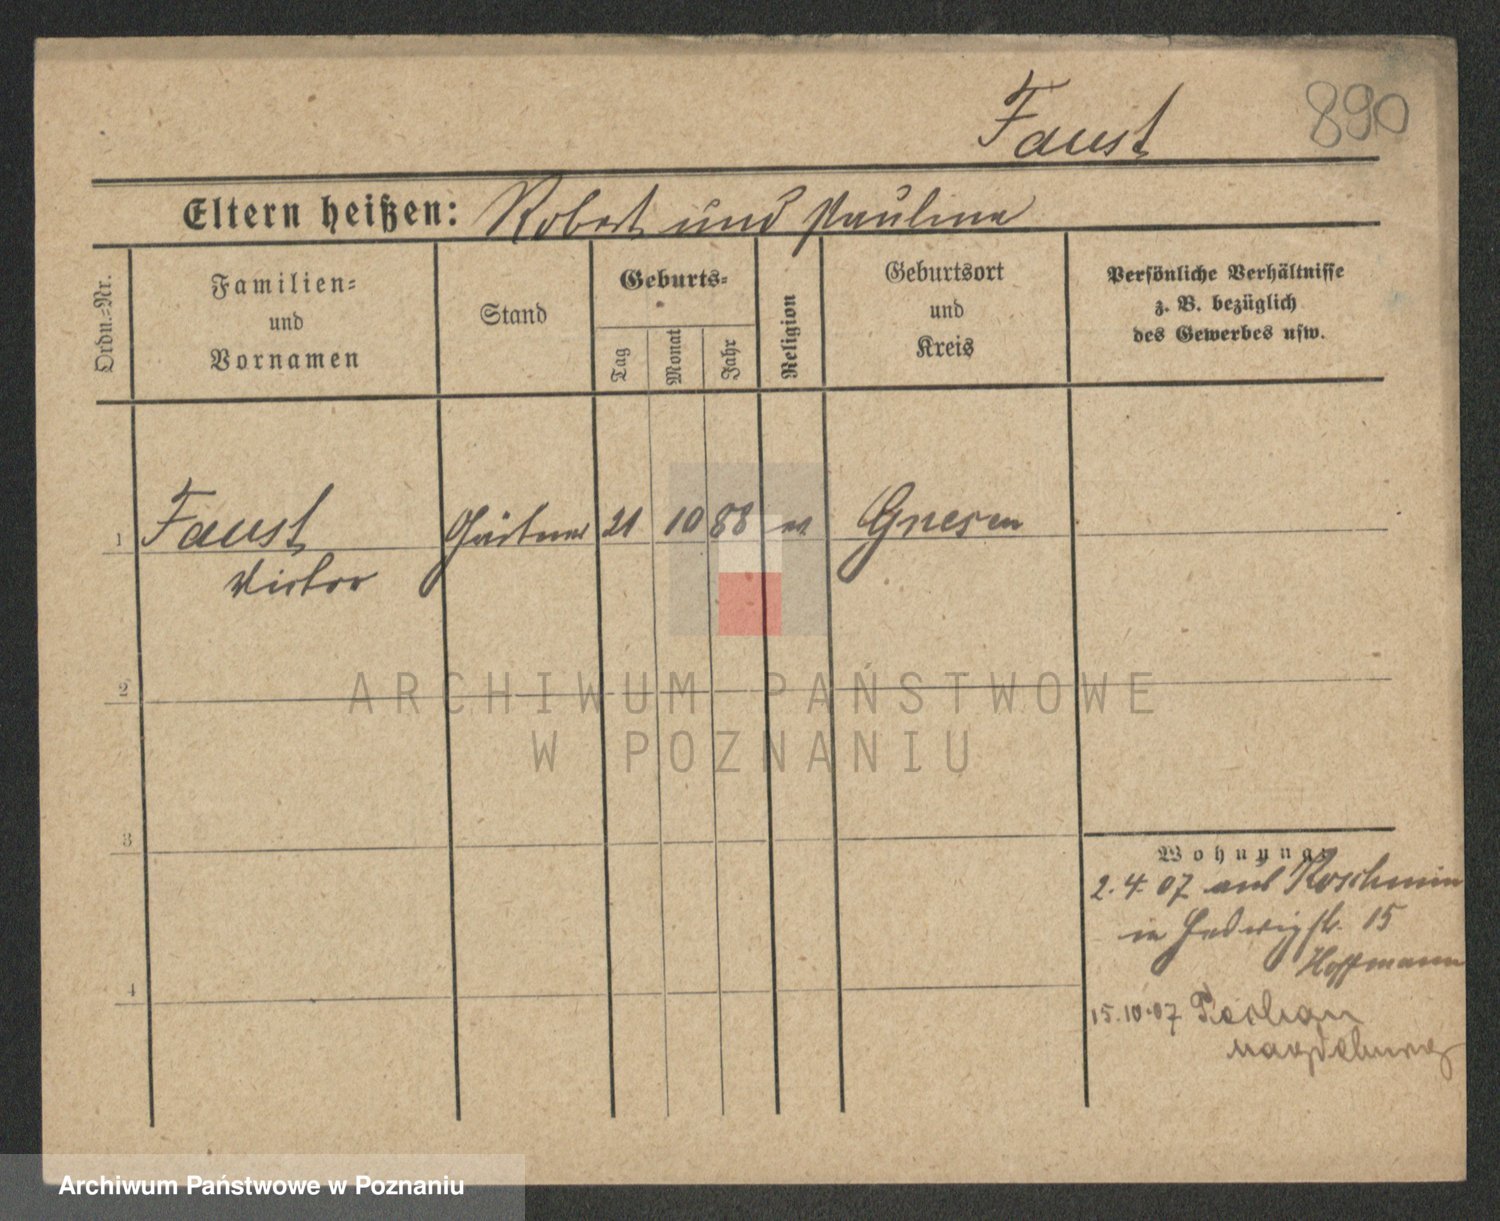 Faust
890
Eltern heißen: Robert und Pauline
Ordn.-Nr.
Familien-
und
Vornamen
Stand
Geburts-
Tag
Monat
Jahr
Religion
Geburtsort
und
Kreis
Persönliche Verhältnisse
z. B. bezüglich
des Gewerbes usw.
1 Faust Gärtner 21 10 88 Gnesen
Victor
2
3
4
Wohnung:
2.4.07 aus Koschmin
in Hedwigstr. 15
Hoffmann
15.10.07
Magdeburg
ARCHIWUM PAŃSTWOWE
W POZNANIU
Archiwum Państwowe w Poznaniu